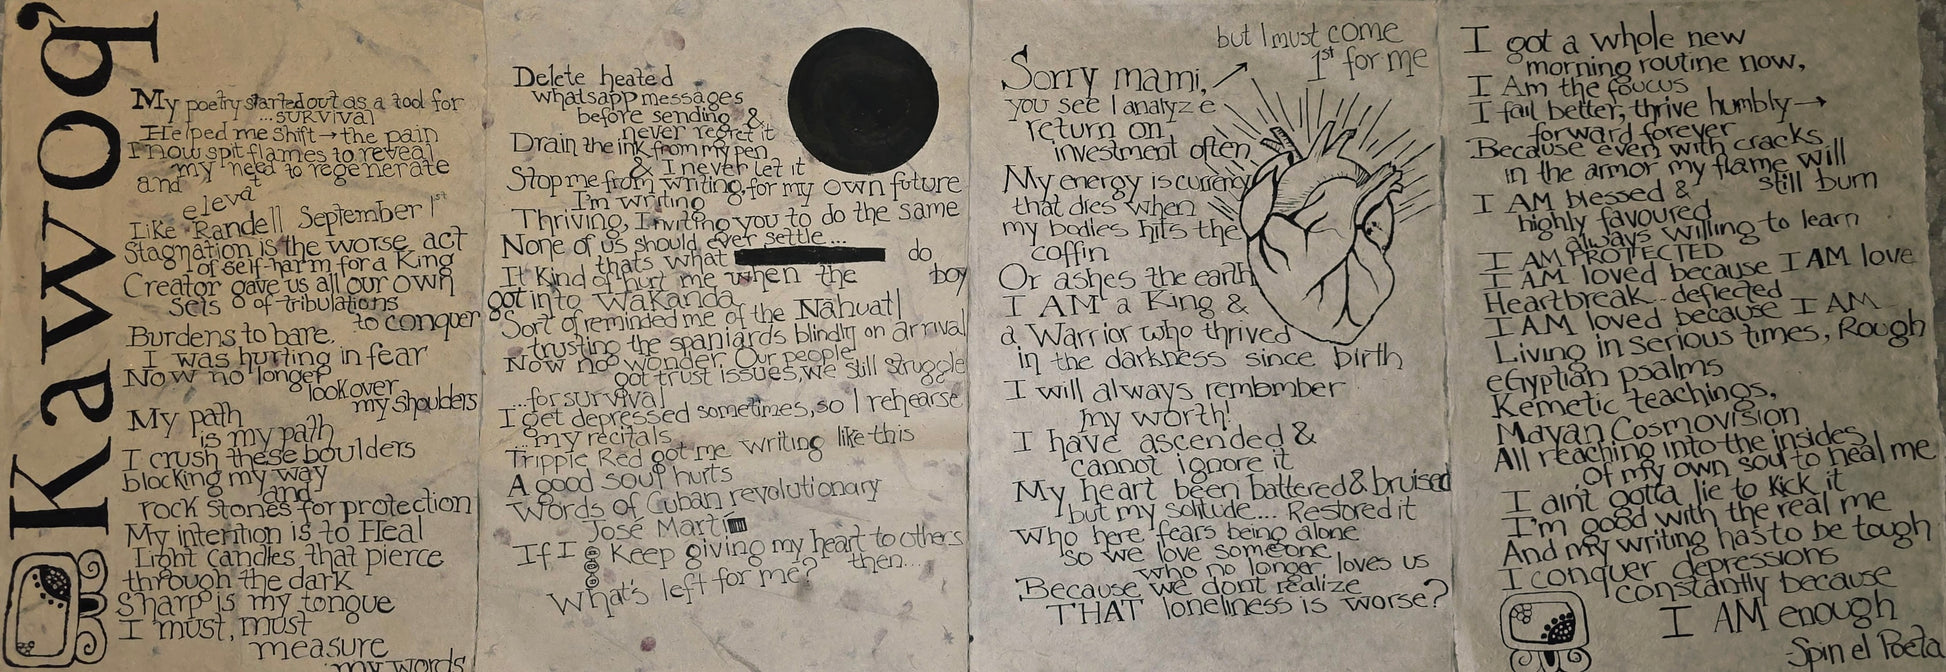 Kawoq'
My poetry started out as a tool for
...survival
Helped me shift → the pain
I now spit flames to reveal
my need to regenerate
and
elevat
Like Randell September 1st
Stagnation is the worse act
of self-harm for a King
Creator gave us all our own
sets of tribulations
to conquer
Burdens to bare,
I was hurting in fear
Now no longer
look over
my shoulders
My path
is my path
I crush these boulders
blocking my way
and
rock stones for protection
My intention is to Heal
Light candles that pierce
through the dark
Sharp is my tongue
I must, must
measure
my words
Delete heated
whatsapp messages
before sending &
never regret it
Drain the ink from my pen
& I never let it
Stop me from writing, for my own future
I'm writing
Thriving, Inviting you to do the same
None of us should ever settle...
thats what do
It Kind of hurt me when the boy
got into WaKanda
Sort of reminded me of the Nahuatl
trusting the spaniards blindly on arrival
Now no wonder Our people
got trust issues, we still struggle
...for survival
I get depressed sometimes, so I rehearse
...my recitals
Trippie Red got me writing like this
A good soul hurts
Words of Cuban revolutionary
José Martí
If I Keep giving my heart to others
then....
What's left for me?
but I must come
1st for me
Sorry mami,
you see I analyze
return on
investment often
My energy is currency
that dies when
my bodies hits the
coffin
Or ashes the earth
I AM a King &
a Warrior who thrived
in the darkness since birth
I will always rembmber
my worth!
I have ascended &
cannot ignore it
My heart been battered & bruised
but my solitude.... Restored it
Who here fears being alone
so we love someone
who no longer loves us
Because we dont realize
THAT loneliness is worse?
I got a whole new
morning routine now,
I Am the foucus
I fail better, thrive humbly →
forward forever
Because even with cracks
in the armor my flame will
still burn
I AM blessed &
highly favoured
always willing to learn
I AM PROTECTED
I AM loved because I AM love
Heartbreak.. deflected
I AM loved because I AM
Living in serious times, Rough
eGyptian psalms
Kemetic teachings,
Mayan Cosmovision
All reaching into the insides
Of my own soul to heal me
I aint gotta lie to Kick it
I'm good with the real me
And my writing has to be tough
I conquer depressions
constantly because
I AM enough
-Spin el Poeta